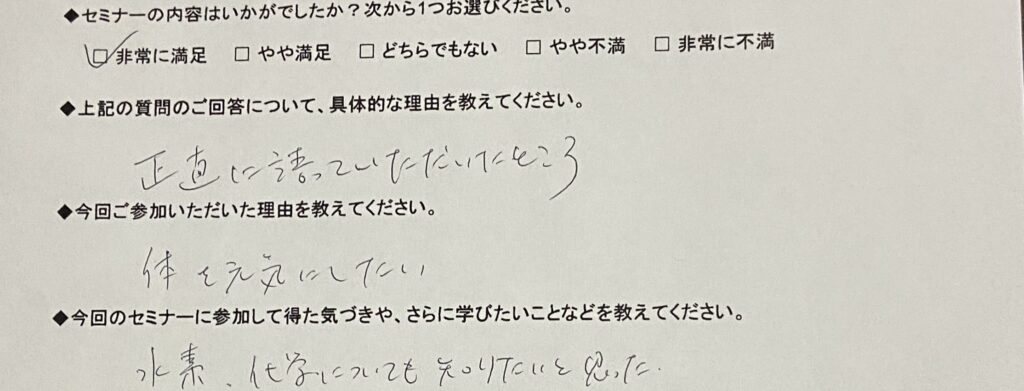 ◆セミナーの内容はいかがでしたか？次から1つお選びください。
☑ 非常に満足 □ やや満足 □ どちらでもない □ やや不満 □ 非常に不満
◆上記の質問のご回答について、具体的な理由を教えてください。
正直に語っていただいたところ
◆今回ご参加いただいた理由を教えてください。
体を元気にしたい
◆今回のセミナーに参加して得た気づきや、さらに学びたいことなどを教えてください。
水素、化学についても知りたいと思った.